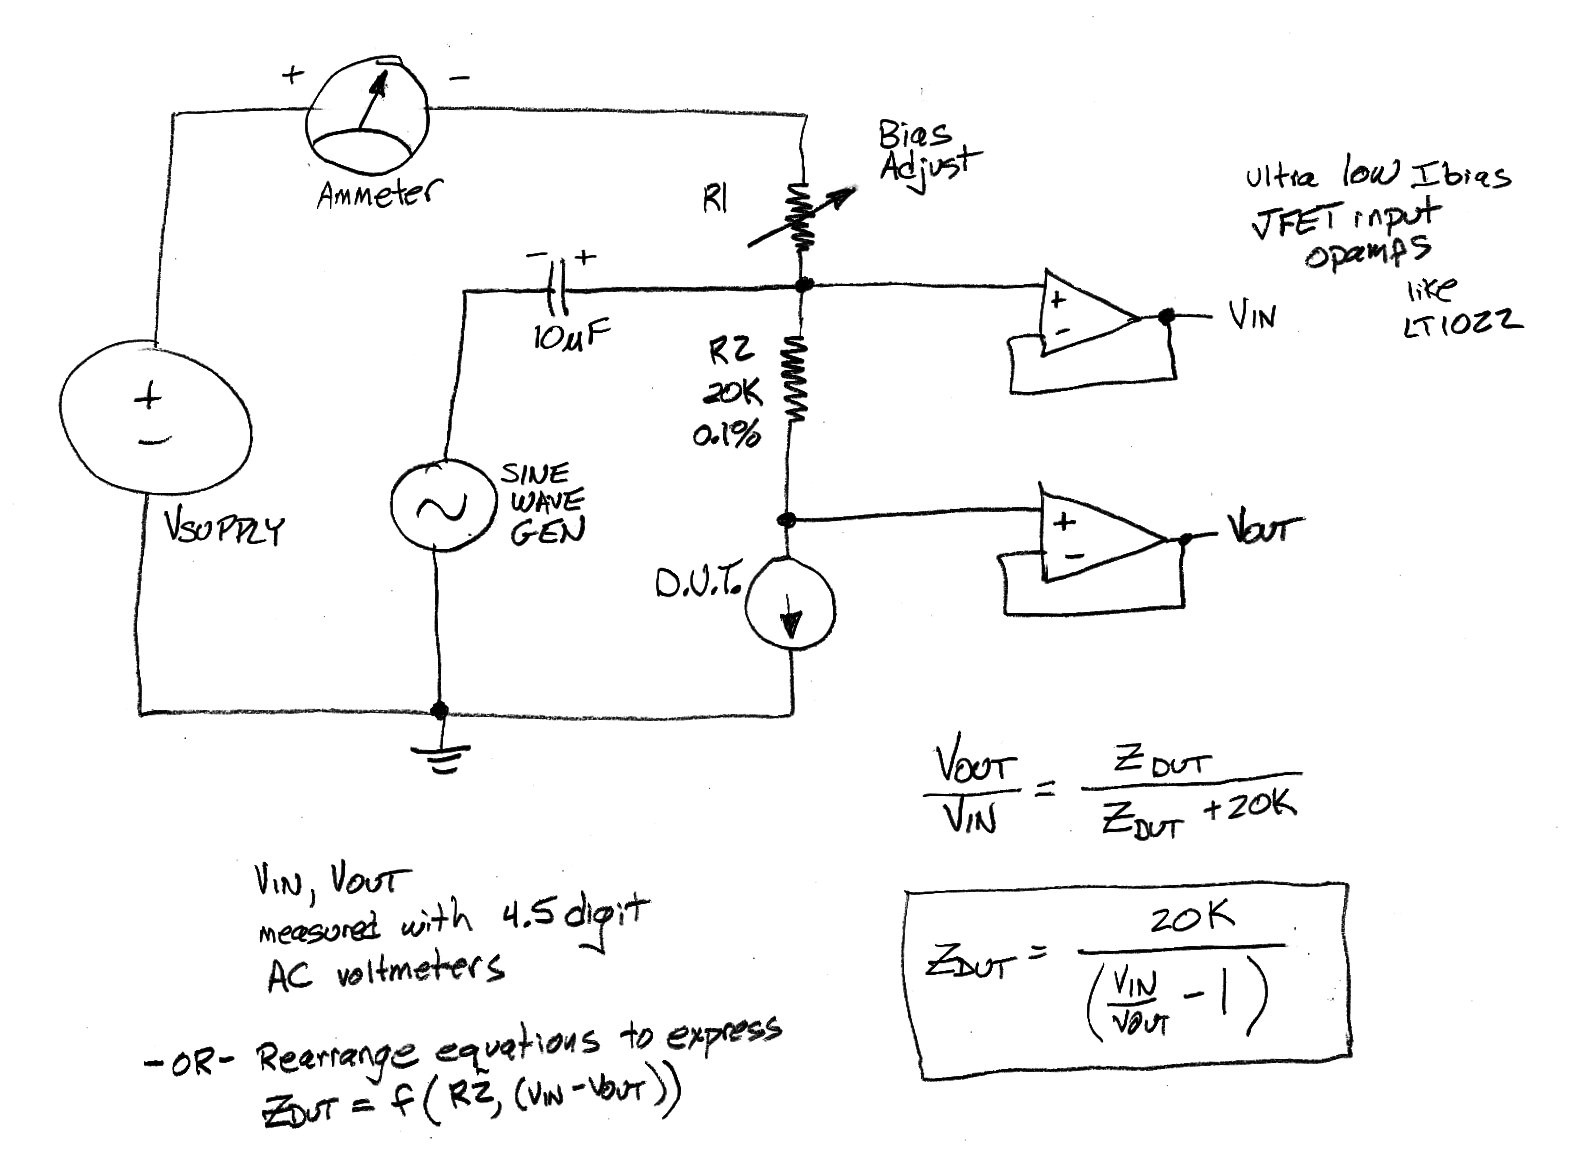 + −
Ammeter
Bias
Adjust
R1
Ultra low Ibias
JFET input
opamps
like
LT1022
− +
10µF
+
−
VIN
R2
20K
0.1%
+
−
VSUPPLY
SINE
WAVE
GEN
+
−
VOUT
D.U.T.
VOUT / VIN = ZDUT / ZDUT + 20K
VIN, VOUT
measured with 4.5 digit
AC voltmeters
ZDUT = 20K / (VIN / VOUT − 1)
-OR- Rearrange equations to express
ZDUT = f(R2, (VIN − VOUT))